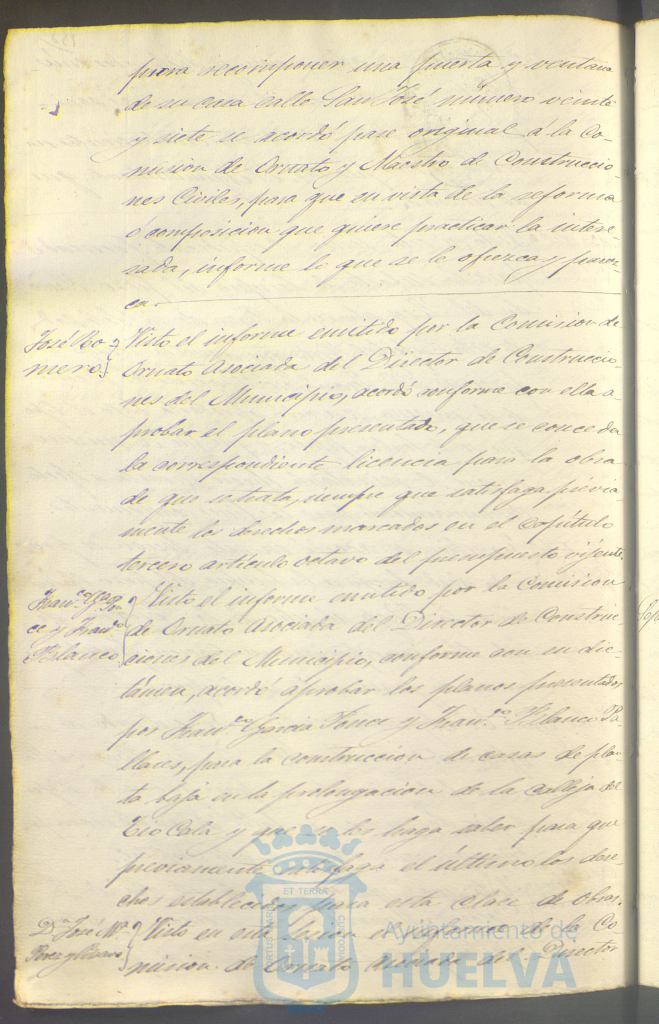 para recomponer una puerta y ventana
de su casa calle San José número veinte
y siete se acordó pase original á la Co-
mision de Ornato y Maestro de Construccio-
nes Civiles, para que en vista de la reforma
ó composicion que quiere practicar la intere-
sada, informe lo que se le ofrezca y parez-
ca.
José Ro-
mero
Visto el informe emitido por la Comision de
Ornato Asociada del Director de Construccio-
nes del Municipio, acordó conforme con ella a-
probar el plano presentado, que se conceda
la correspondiente licencia para la obra
de que se trata, siempre que satisfaga prévia-
mente los derechos marcados en el Capítulo
tercero artículo octavo del presupuesto vijente.
Franco
ce y Franco
Blanco
Visto el informe emitido por la Comision
de Ornato Asociada del Director de Construc-
ciones del Municipio, conforme con su dic-
támen, acordó aprobar los planos presentados
por Franco Garcia Ponce y Franco Blanco Pa-
llares, para la construccion de casas de plan-
ta baja en la prolongacion de la calleja del
Tio Cala y que se les haga saber para que
previamente satisfaga el último los dere-
chos establecidos para esta clase de obras.
Dn José Ma
Perez y
Visto en esta Sesion el informe de la Co-
mision de Ornato Asociada del Director
Ayuntamiento de
HUELVA
ET TERRA